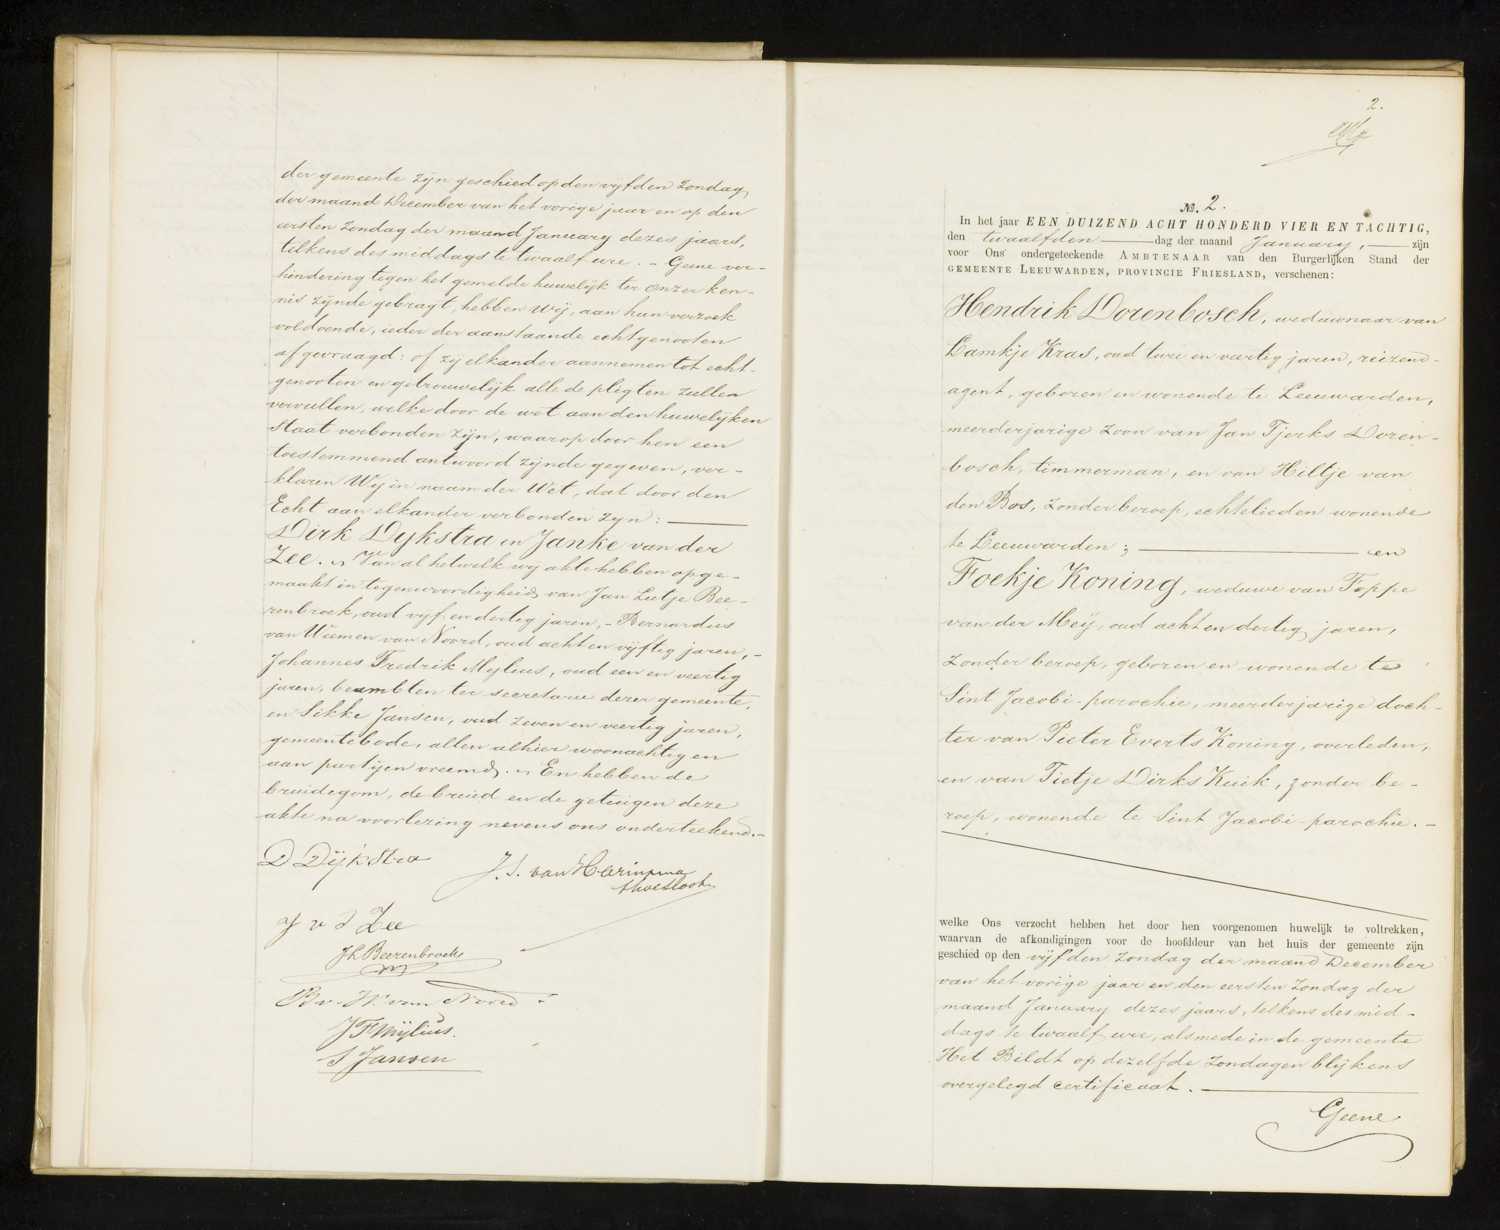 der gemeente zijn geschied op den vijfden Zondag
der maand December van het vorige jaar en op den
eersten Zondag der maand January dezes jaars,
telkens des middags te twaalf ure. – Geene ver-
hindering tegen het gemelde huwelijk ter onzer ken-
nis zijnde gebragt, hebben Wij, aan hun verzoek
voldoende, ieder der aanstaande echtgenooten
afgevraagd: of zij elkander aannemen tot echt-
genooten en getrouwelijk alle de pligten zullen
vervullen, welke door de wet aan den huwelijken
Staat verbonden zijn, waarop door hen een
toestemmend antwoord zijnde gegeven, ver-
klaren Wij in naam der Wet, dat door den
Echt aan elkander verbonden zijn:
Dirk Dykstra en Janke van der
Zee. Van al hetwelk wij akte hebben opge-
maakt in tegenwoordigheid van Jan Lutje Bee-
renbroek, oud vijf en dertig jaren, – Bernardus
van Wiemen van Noord, oud acht en vijftig jaren, –
Johannes Fredrik Mylius, oud een en veertig
jaren, beambten ter secretarie dezer gemeente,
en Sikke Jansen, oud zeven en veertig jaren,
gemeentebode, allen alhier woonachtig en
aan partijen vreemd. En hebben de
bruidegom, de bruid en de getuigen deze
akte na voorlezing nevens ons onderteekend. –
D Dijkstra
J. S. van Harinxma
thoe Slooten
J v d Zee
J L Beerenbroek
B v. W. van Noord
J F Mijlius.
S Jansen
2.
No. 2.
In het jaar EEN DUIZEND ACHT HONDERD VIER EN TACHTIG,
den twaalfden dag der maand January, zijn
voor Ons ondergeteekende AMBTENAAR van den Burgerlijken Stand der
GEMEENTE LEEUWARDEN, PROVINCIE FRIESLAND, verschenen:
Hendrik Dorenbosch, weduwnaar van
Lamkje Kras, oud twee en veertig jaren, reizend-
agent, geboren en wonende te Leeuwarden,
meerderjarige zoon van Jan Tjerks Doren-
bosch, timmerman, en van Hiltje van
den Bos, zonder beroep, echtelieden wonende
te Leeuwarden; en
Foekje Koning, weduwe van Foppe
van der Meij, oud acht en dertig jaren,
zonder beroep, geboren en wonende te
Sint Jacobi-parochie, meerderjarige doch-
ter van Pieter Everts Koning, overleden,
en van Tietje Dirks Kuik, zonder be-
roep, wonende te Sint Jacobi parochie. –
welke Ons verzocht hebben het door hen voorgenomen huwelijk te voltrekken,
waarvan de afkondigingen voor de hoofddeur van het huis der gemeente zijn
geschied op den vijfden Zondag der maand December
van het vorige jaar en den eersten Zondag der
maand January dezes jaars, telkens des mid-
dags te twaalf ure, alsmede in de gemeente
Het Bildt op dezelfde Zondagen blijkens
overgelegd certificaat.
Geene